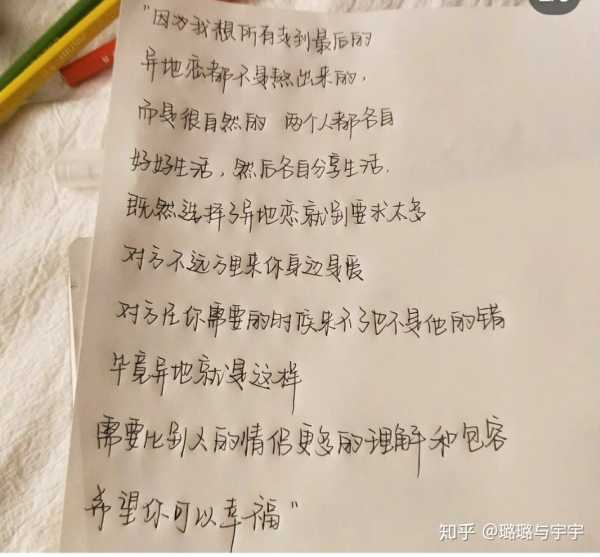 "因为我想所有走到最后的
异地恋都不是熬出来的,
而是很自然的 两个人都各自
好好生活,然后各自分享生活.
既然选择了异地恋就别要求太多
对方不远万里来你身边是爱
对方在你需要的时候来不了也不是他的错
毕竟异地就是这样
需要比别人的情侣更多的理解和包容
希望你可以幸福"
知乎 @璐璐与宇宇